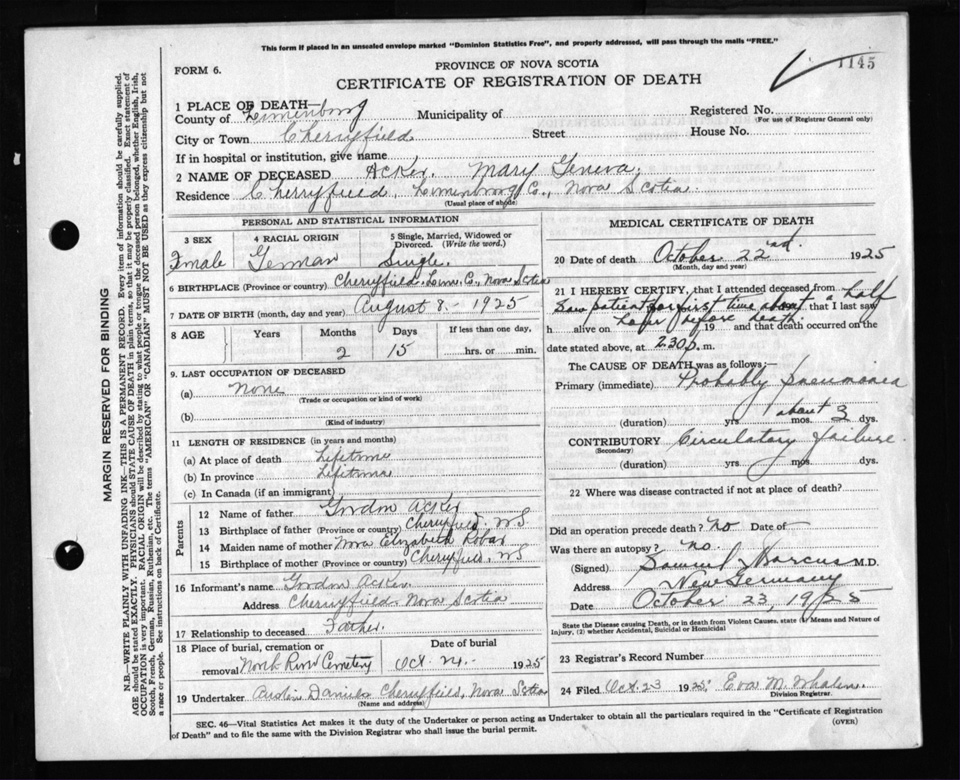 This form if placed in an unsealed envelope marked "Dominion Statistics Free", and properly addressed, will pass through the mails "FREE."
1145
FORM 6.
PROVINCE OF NOVA SCOTIA
CERTIFICATE OF REGISTRATION OF DEATH
1 PLACE OF DEATH—
County of Lunenburg Municipality of
Registered No.
(For use of Registrar General only)
City or Town Cherryfield Street House No.
If in hospital or institution, give name
2 NAME OF DECEASED Acker, Mary Geneva,
Residence Cherryfield, Lunenburg Co., Nova Scotia.
(Usual place of abode)
PERSONAL AND STATISTICAL INFORMATION
3 SEX
Female
4 RACIAL ORIGIN
German
5 Single, Married, Widowed or Divorced. (Write the word.)
Single.
6 BIRTHPLACE (Province or country) Cherryfield, Lun. Co., Nova Scotia
7 DATE OF BIRTH (month, day and year) August 8 - 1925
8 AGE
Years Months Days If less than one day,
2 15 hrs. or min.
9. LAST OCCUPATION OF DECEASED
(a) None
(Trade or occupation or kind of work)
(b)
(Kind of industry)
11 LENGTH OF RESIDENCE (in years and months)
(a) At place of death Lifetime
(b) In province Lifetime
(c) In Canada (if an immigrant)
Parents
12 Name of father Gordon Acker
13 Birthplace of father (Province or country) Cherryfield, NS
14 Maiden name of mother Nora Elizabeth Robar
15 Birthplace of mother (Province or country) Cherryfield, NS
16 Informant's name Gordon Acker.
Address Cherryfield Nova Scotia
17 Relationship to deceased Father.
18 Place of burial, cremation or removal North River Cemetery
Date of burial
Oct. 24 - 1925
19 Undertaker Daniels Cherryfield, Nova Scotia
(Name and address)
MEDICAL CERTIFICATE OF DEATH
20 Date of death October 22nd. 1925
(Month, day and year)
21 I HEREBY CERTIFY, that I attended deceased from
Saw patient for first time about a half
that I last saw
hour before death
h alive on 19 and that death occurred on the
date stated above, at 2.30 p. m.
The CAUSE OF DEATH was as follows:—
Primary (immediate) Probably Pneumonia
(duration) yrs. mos. about 3 dys.
CONTRIBUTORY Circulatory failure.
(Secondary)
(duration) yrs. mos. dys.
22 Where was disease contracted if not at place of death?
Did an operation precede death? no Date of —
Was there an autopsy? no.
(Signed) Samuel Marcus M.D.
Address New Germany
Date October 23, 1925
State the Disease causing Death, or in death from Violent Causes, state (1) Means and Nature of Injury, (2) whether Accidental, Suicidal or Homicidal
23 Registrar's Record Number
24 Filed Oct. 23 1925 Eva M. Whalen.
Division Registrar.
SEC. 46—Vital Statistics Act makes it the duty of the Undertaker or person acting as Undertaker to obtain all the particulars required in the "Certificate of Registration
of Death" and to file the same with the Division Registrar who shall issue the burial permit.
(OVER)
MARGIN RESERVED FOR BINDING
N.B.—WRITE PLAINLY WITH UNFADING INK—THIS IS A PERMANENT RECORD. Every item of information should be carefully supplied.
AGE should be stated EXACTLY. PHYSICIANS should STATE CAUSE OF DEATH in plain terms, so that it may be properly classified. Exact statement of
OCCUPATION is very important. RACIAL ORIGIN will be described by stating to what people or tongue the deceased person belonged, whether English, Irish,
Scotch, French, German, Russian, Ruthenian, etc. The terms "AMERICAN" OR "CANADIAN" MUST NOT BE USED as they express citizenship but not
a race or people. See instructions on back of Certificate.